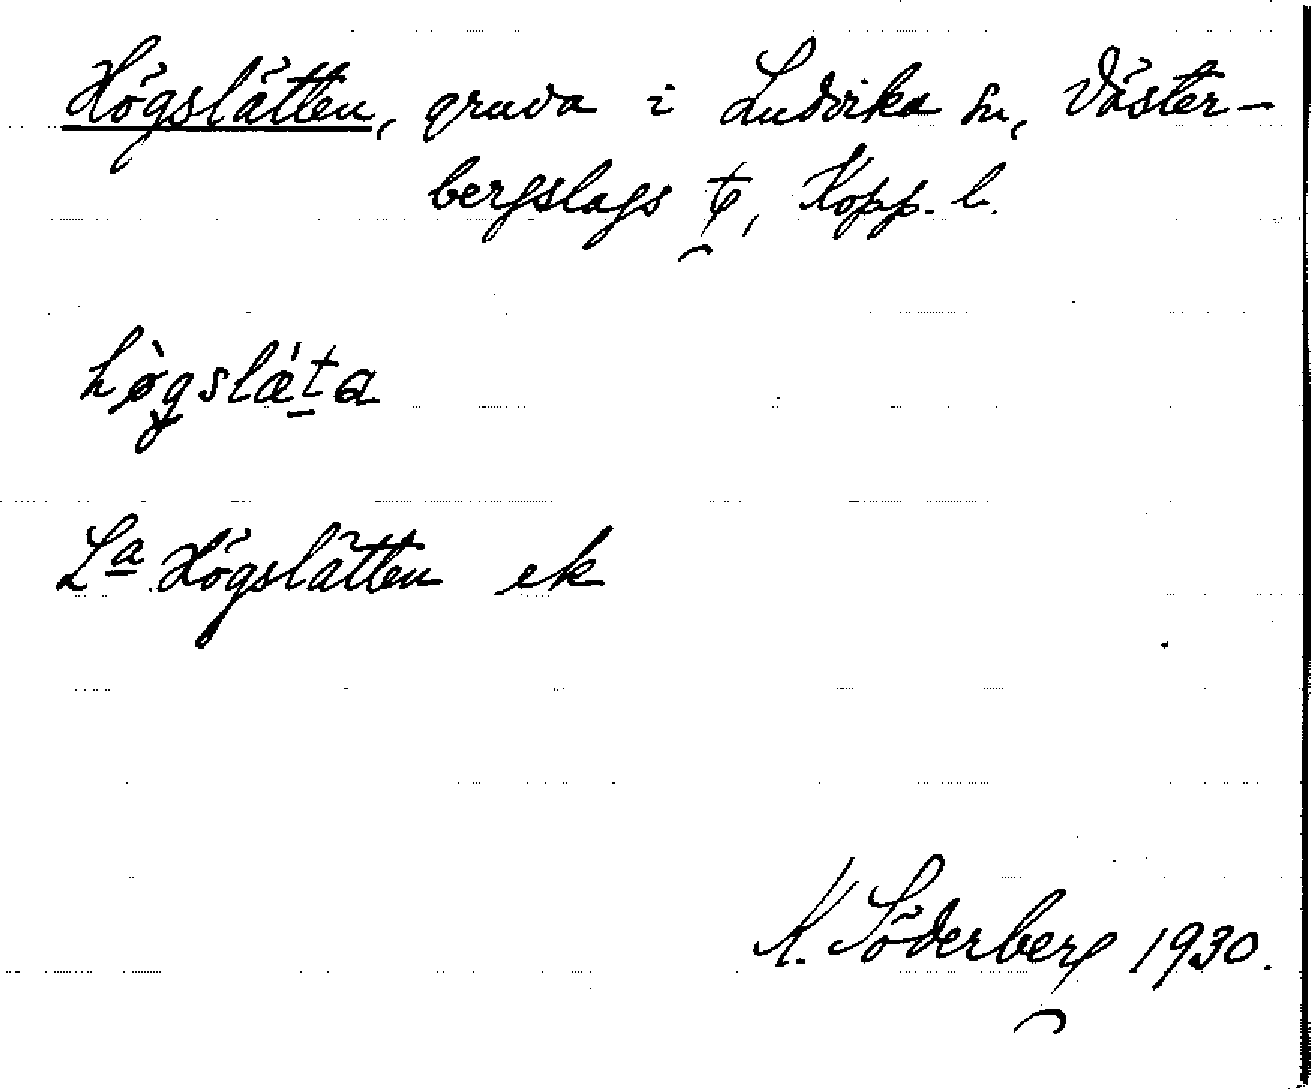 Högslätten, gruva i Ludvika sn, Väster-
bergslags tg, Kopp. l.
hø̀gslæ̀ta
La Högslätten ek
K. Söderberg 1930.